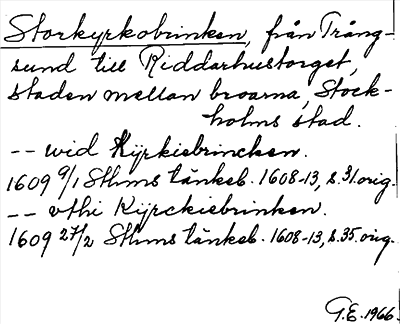 Storkyrkobrinken, från Trång-
sund till Riddarhustorget,
staden mellan broarna, Stock-
holms stad.
-- wid Kyrkiebrincken.
1609 9/1 Sthms tänkeb. 1608-13, s. 31. orig.
-- vthi Kÿrckiebrinken.
1609 27/2 Sthms tänkeb. 1608-13, s. 35. orig.
G.E. 1966.